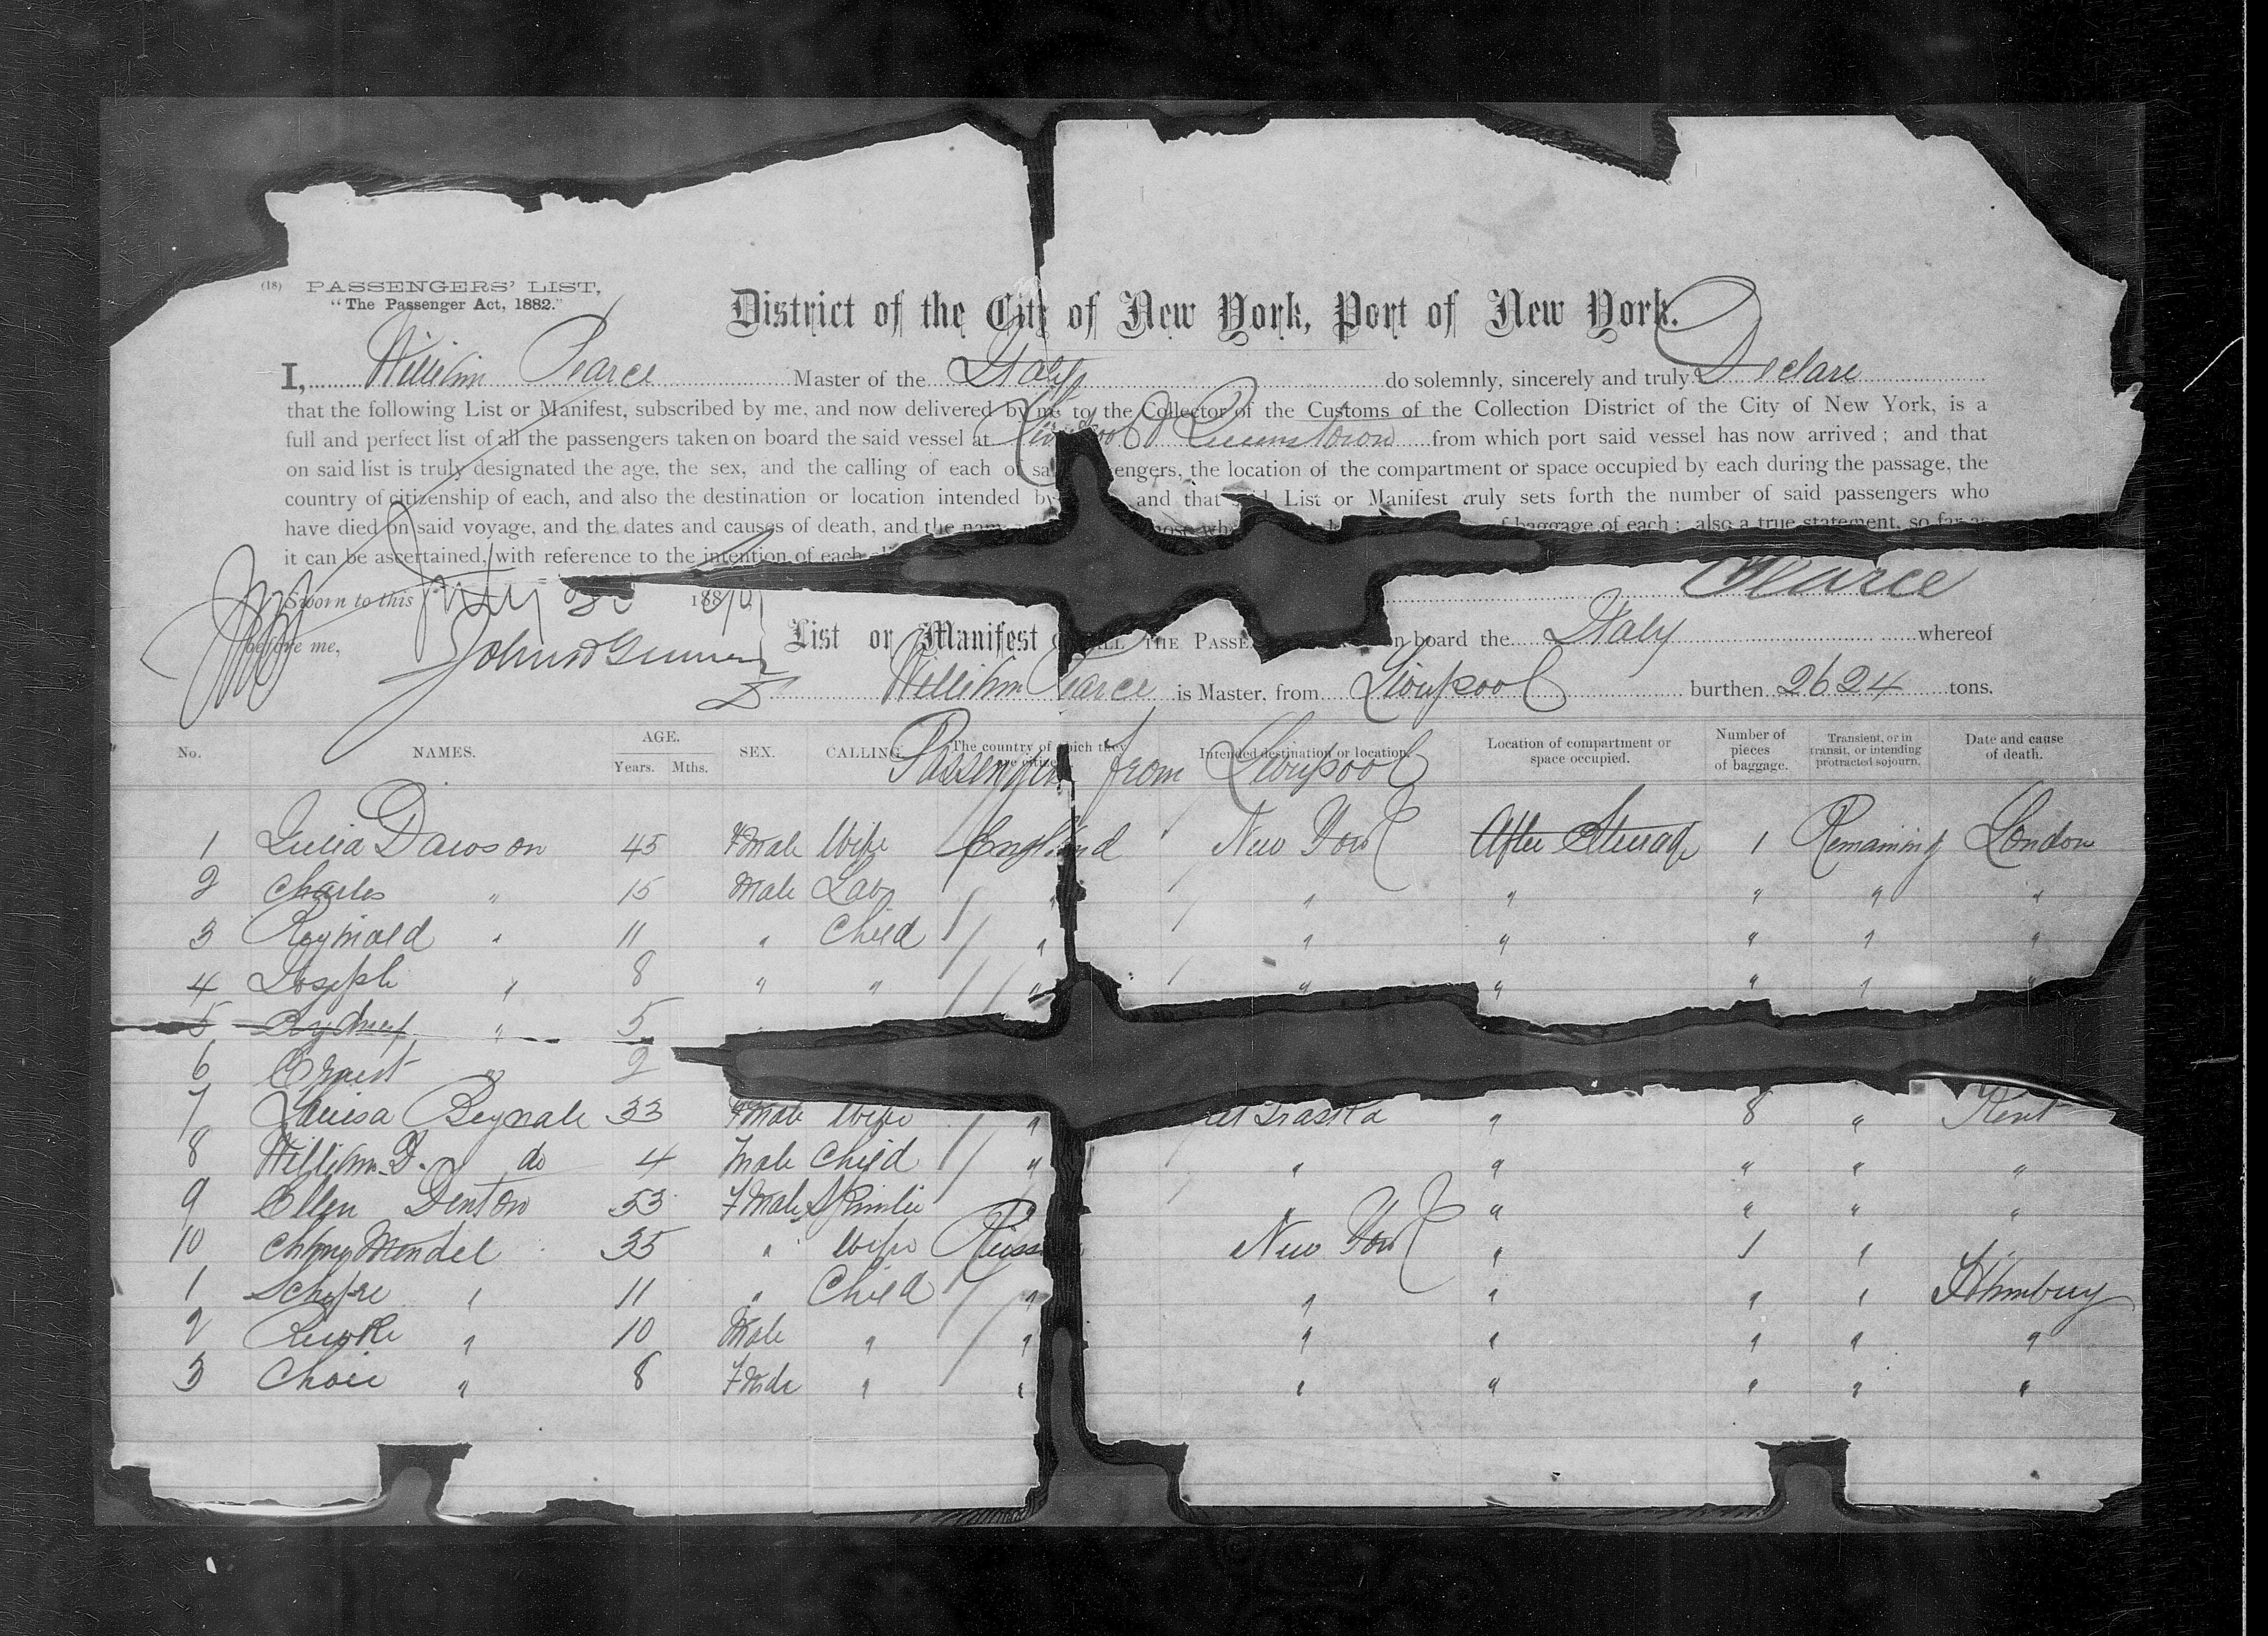 (18) PASSENGERS' LIST,
"The Passenger Act, 1882."
District of the City of New York, Port of New York.
I, William Pearce Master of the Italy do solemnly, sincerely and truly Declare
that the following List or Manifest, subscribed by me, and now delivered by me to the Collector of the Customs of the Collection District of the City of New York, is a
full and perfect list of all the passengers taken on board the said vessel at Liverpool & Queenstown from which port said vessel has now arrived; and that
on said list is truly designated the age, the sex, and the calling of each of sa engers, the location of the compartment or space occupied by each during the passage, the
country of citizenship of each, and also the destination or location intended by and that said List or Manifest truly sets forth the number of said passengers who
have died on said voyage, and the dates and causes of death, and the nam hose wh of baggage of each; also a true statement, so far as
it can be ascertained, with reference to the intention of each
Pearce
Sworn to this July 188
before me,
List or Manifest OF ALL THE PASSE on board the Italy whereof
William Pearce is Master, from Liverpool burthen 2624 tons.
No. NAMES. AGE. Years. Mths. SEX. CALLING. The country of which they are citizens. Intended destination or location. Location of compartment or space occupied. Number of pieces of baggage. Transient, or in transit, or intending protracted sojourn. Date and cause of death.
Passengers from Liverpool
1 Julia Dawson 45 Fmale Wife England New York After Steerage 1 Remaining London
2 Charles " 15 Male Lab " " " " " "
3 Reginald " 11 " Child " " " " " "
4 Joseph " 8 " " " " " " " "
5 Sydney " 5
6 Ernest " 2
7 Louisa Beynale 33 Fmale Wife " " 8 " Kent
8 William do 4 Male Child " " " " " "
9 Ellen Denton 53 Fmale " " " " "
10 Mendel 35 " Wife Russ New York " 1 "
1 " 11 " Child " " " " "
2 " 10 Male " " " " " " "
3 " 8 Fmale " " " " " " "